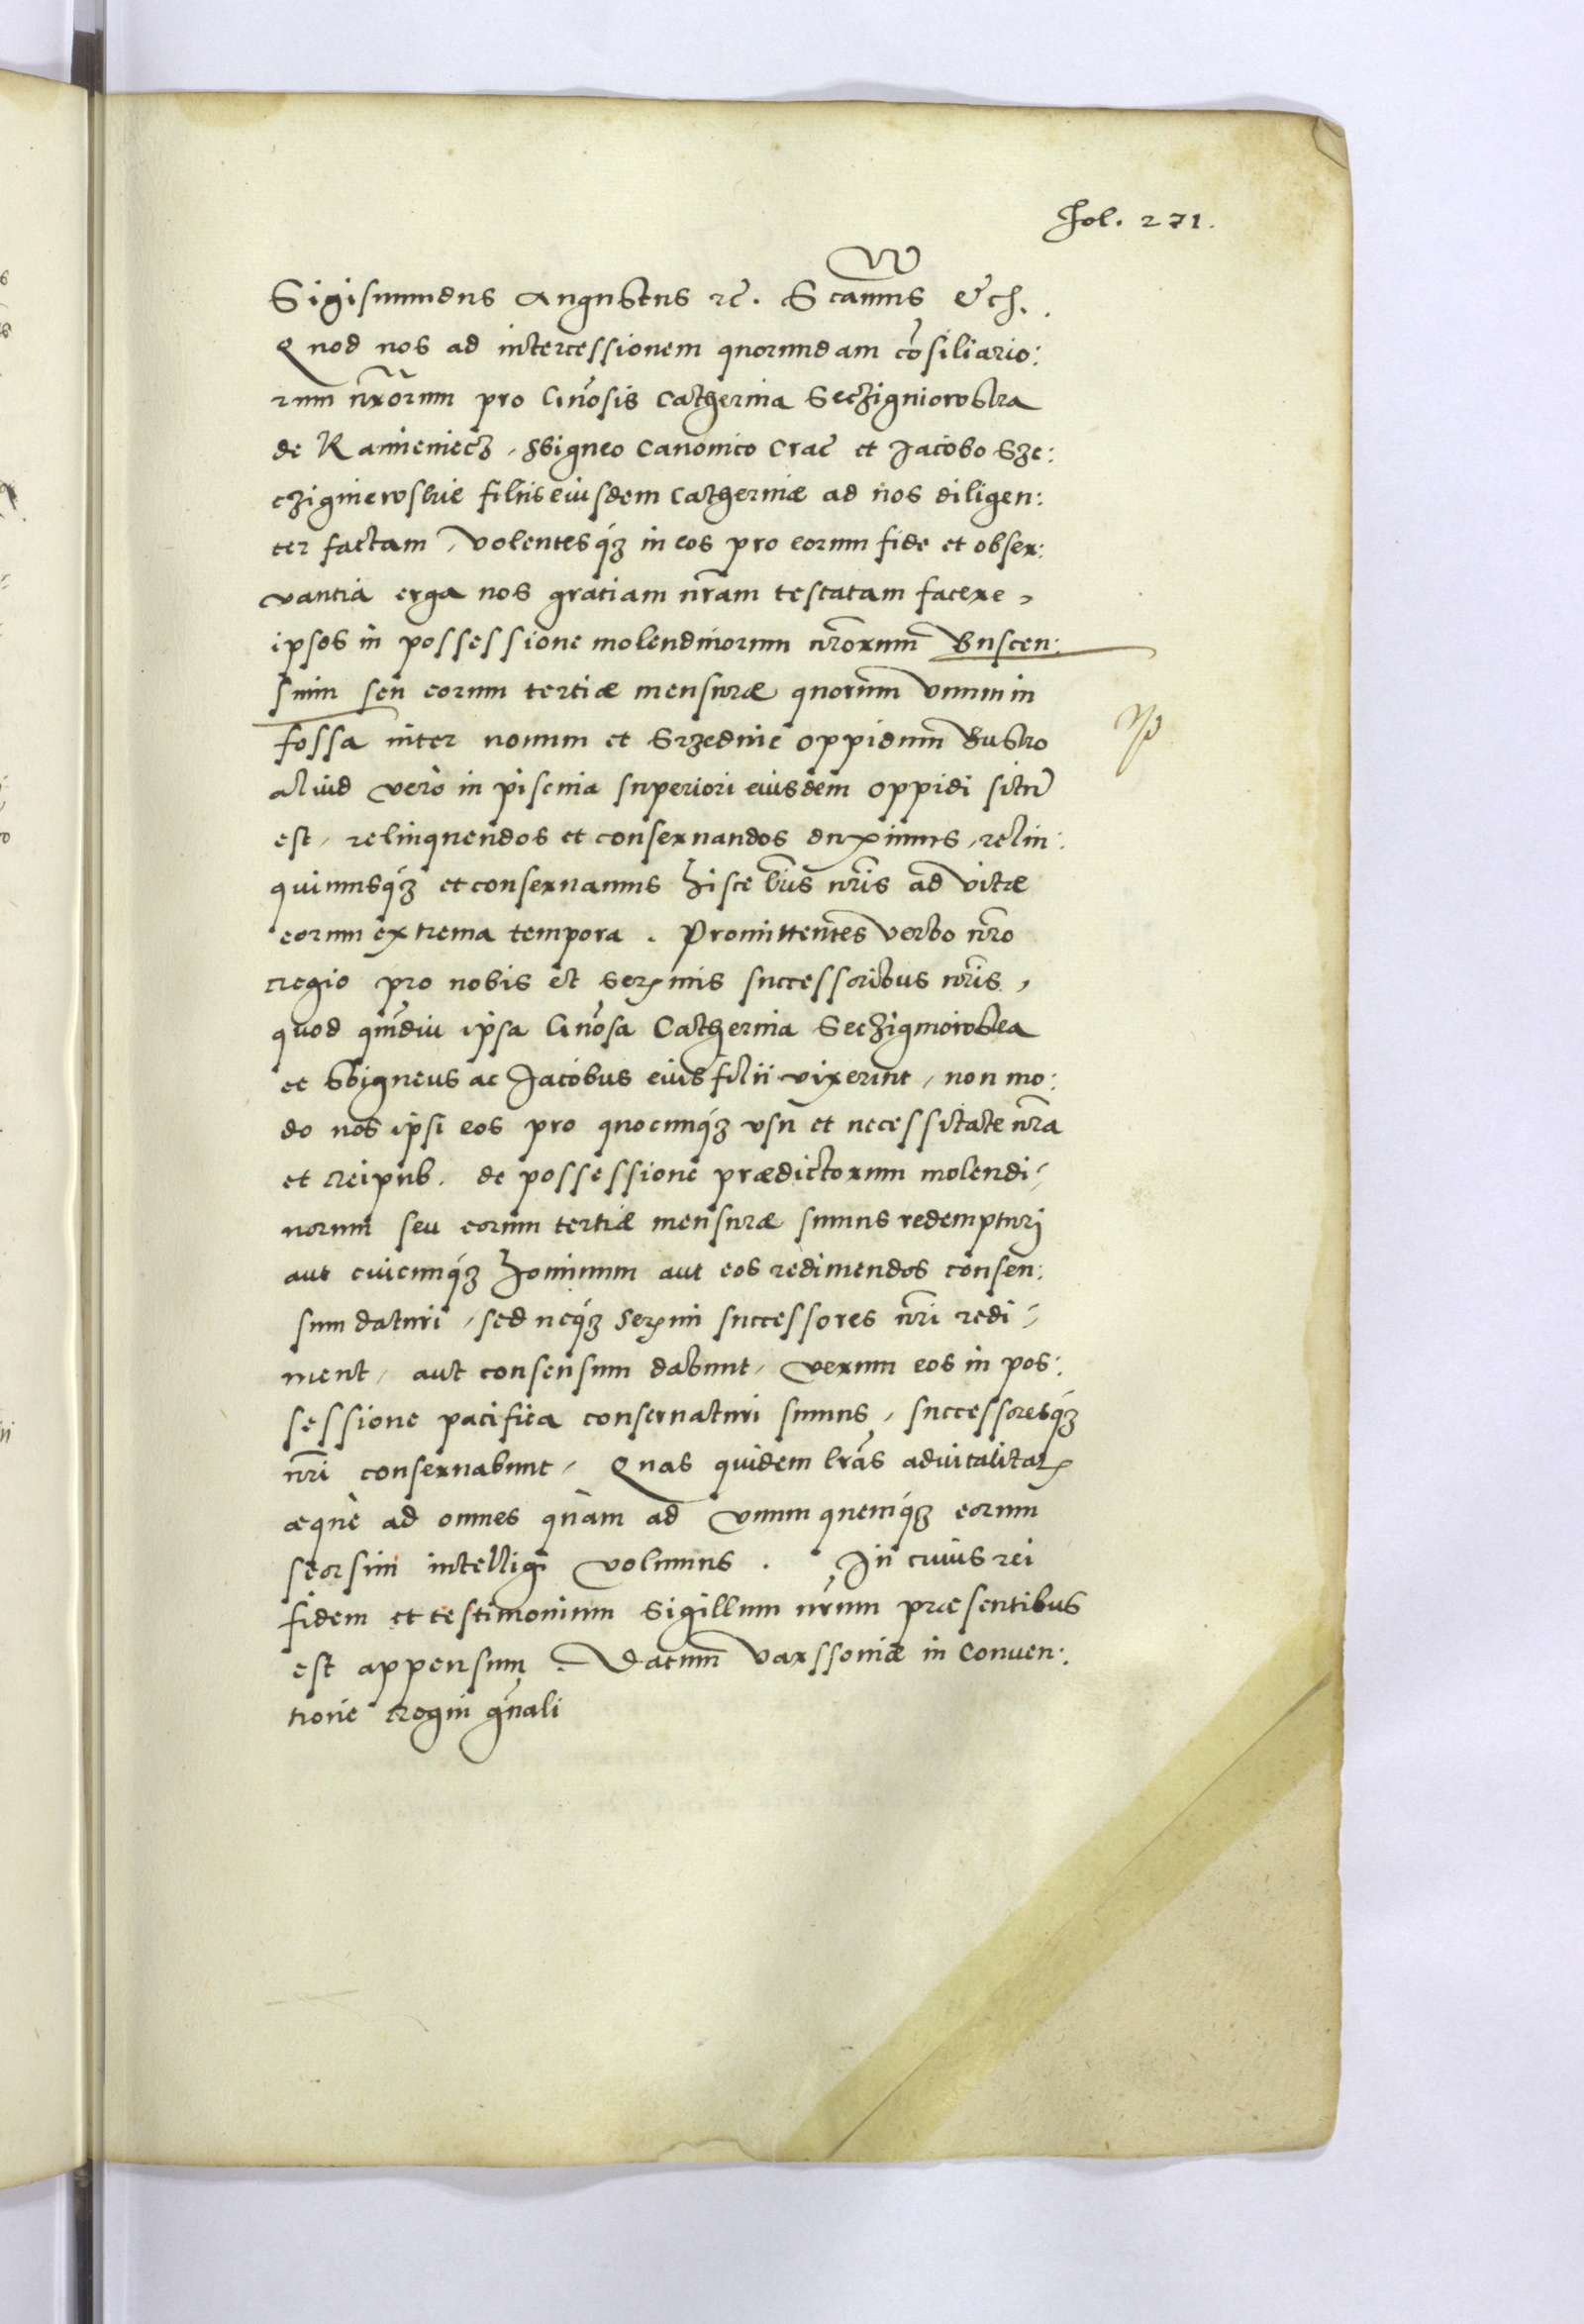 fol. 271.
Sigismundus Augustus rc̃. S canus etch.
Quod nos ad intercessionem quorundam cõsiliario:
rum nr̃orum pro Gnõsis Catherina Seczigniowska
de Kamieniecz, Sbigneo Canonico Crac̃ et Jacobo Sze:
czigniewskie filiis eiusdem Catherinæ ad nos diligen:
ter factam, volentesq́ꝫ in eos pro eorum fide et obser:
vantia erga nos gratiam nr̃am testatam facere,
ipsos in possessione molendinorum nr̃orum Buscen:
sium seu eorum tertiæ mensuræ quorum vnum in
fossa inter nouum et Srzednie oppidum Busko
aliud verò in piscina superiori eiusdem oppidi sitũ
est, relinquendos et conseruandos duximus, relin:
quimusq́ꝫ et conseruamus hisce lr̃is nr̃is ad vitæ
eorum extrema tempora. Promittentes verbo nr̃o
regio pro nobis et Serᵐis successoribus nr̃is,
quod qm̃diu ipsa Gnõsa Catherina Seczigniowska
et Sbigneus ac Jacobus eius filii vixerint, non mo:
do nos ipsi eos pro quocunq́ꝫ vsu et necessitate nr̃a
et Reipub. de possessione prædictorum molendi:
norum seu eorum tertiæ mensuræ sumus redempturi
aut cuicunq́ꝫ hominum aut eos redimendos consen:
sum daturi, sed neq́ꝫ Serᵐi successores nr̃i redi:
ment, aut consensum dabunt, verum eos in pos:
sessione pacifica conseruaturi sumus, successoresq́ꝫ
nr̃i conseruabunt, Quas quidem lr̃as aduitalitat̃
æquè ad omnes quàm ad vnum quemq́ꝫ eorum
seorsim intelligi volumus. In cuius rei
fidem et testimonium Sigillum nr̃um præsentibus
est appensum. Datum Varssoniæ in Conuen:
tione regni gñali